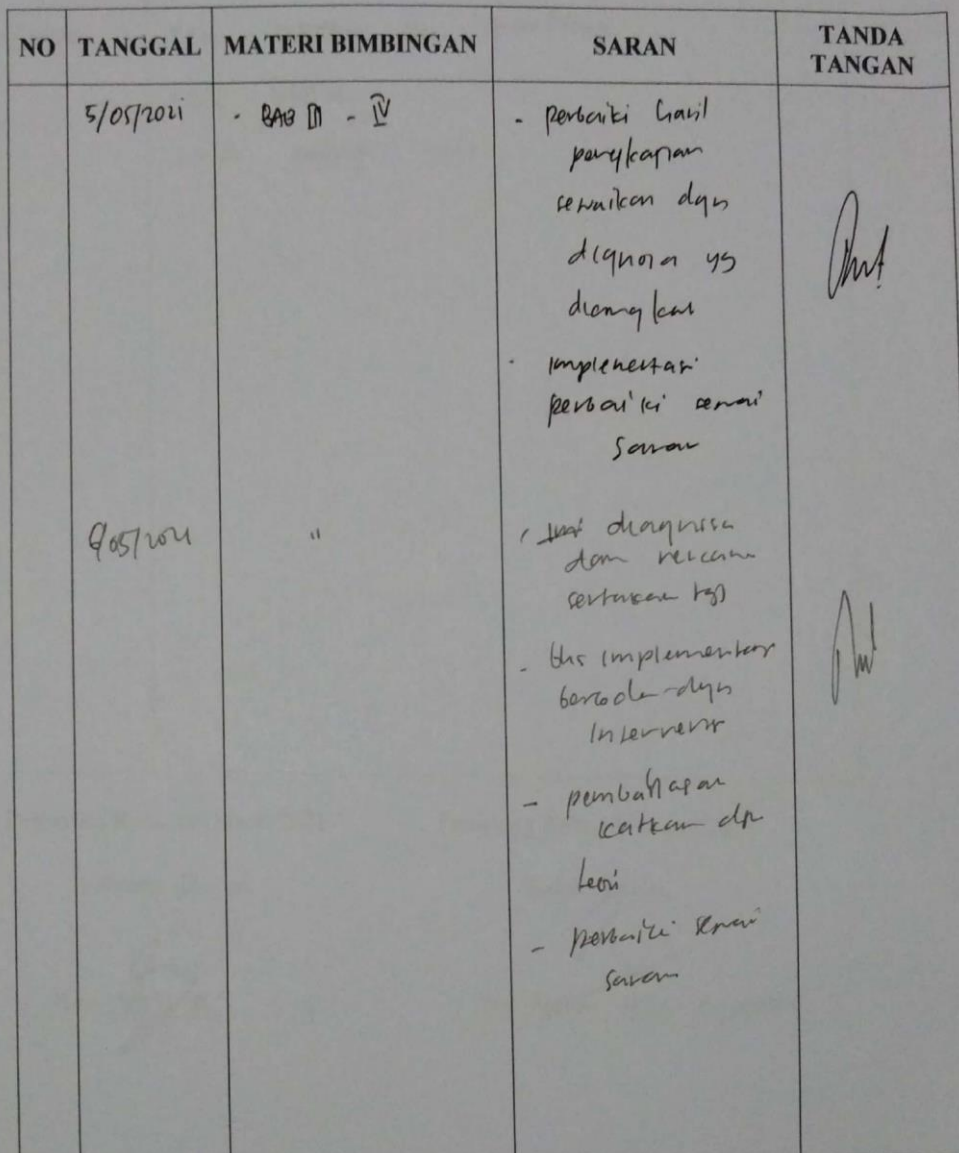 NO TANGGAL MATERI BIMBINGAN SARAN TANDA TANGAN
5/05/2021 - BAB III - IV - perbaiki hasil
pengkajian
sesuaikan dgn
diagnosa yg
diangkat
- implementasi
perbaiki sesuai
saran
/05/2021 " - diagnosa
dan rencana
- implementasi
berbeda dgn
intervensi
- pembahasan
kaitkan dgn
teori
- perbaiki sesuai
saran